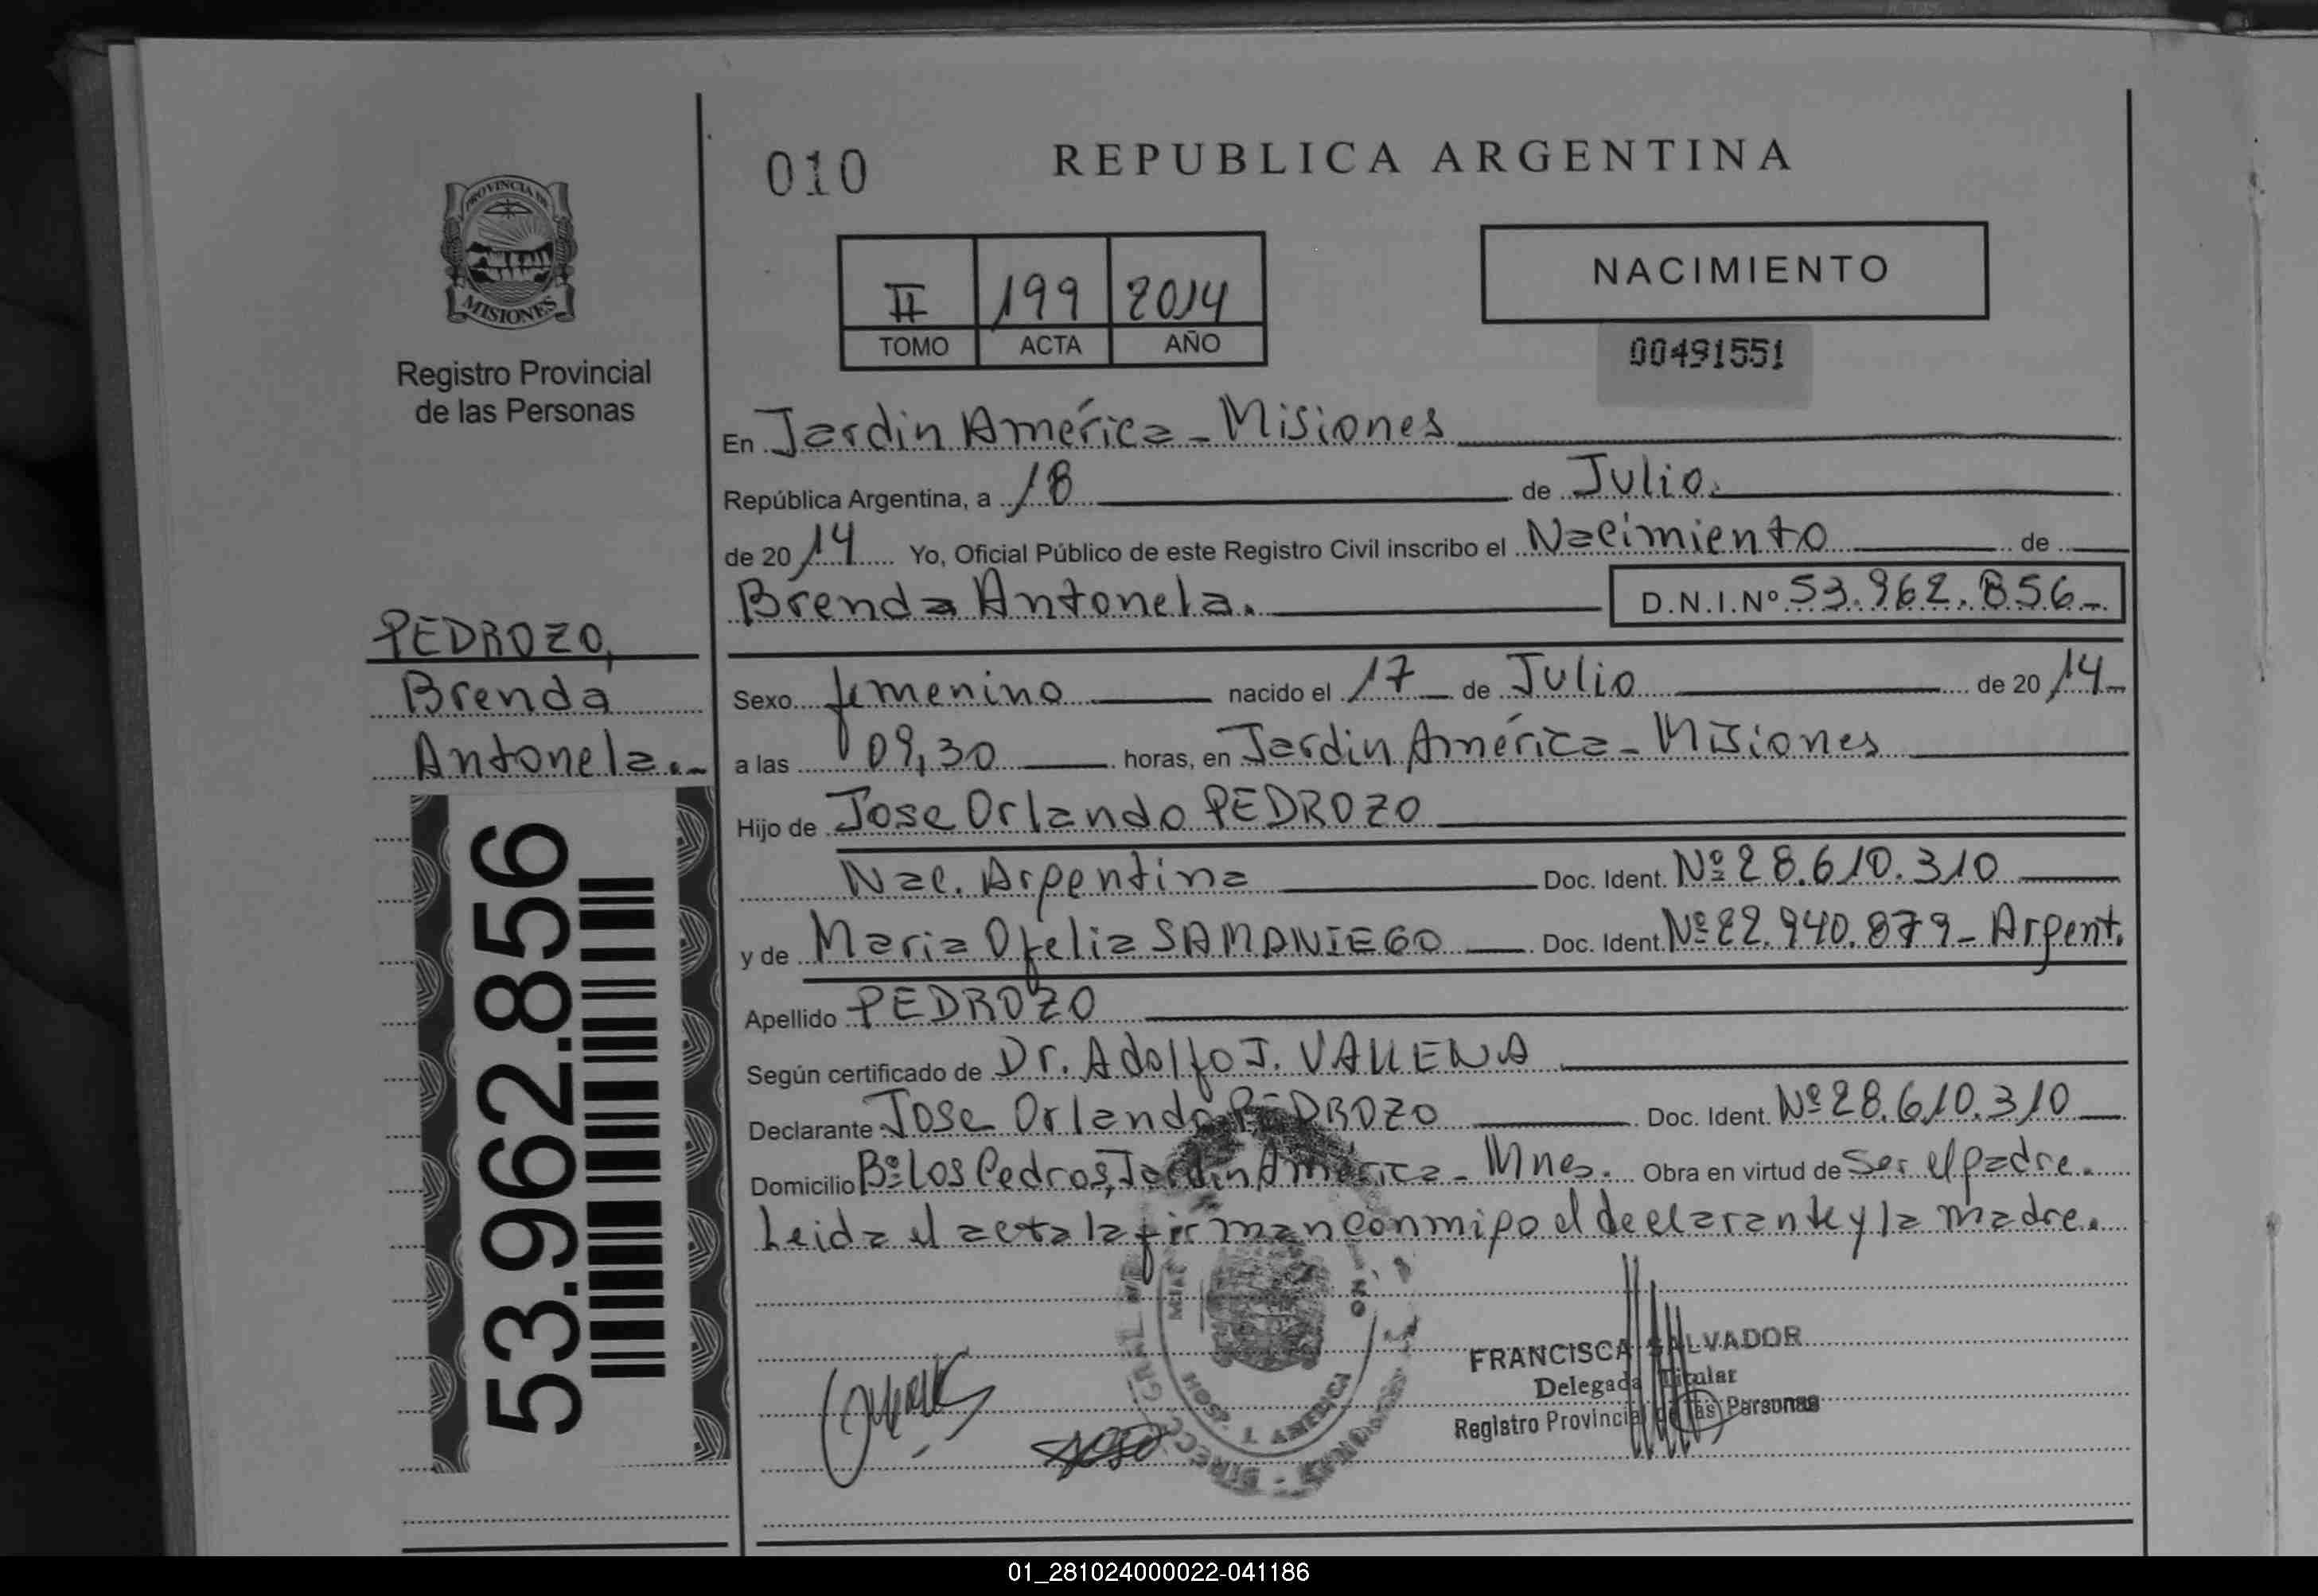 010
REPUBLICA ARGENTINA
PROVINCIA DE
MISIONES
Registro Provincial
de las Personas
II 199 2014
TOMO ACTA AÑO
NACIMIENTO
00491551
En Jardin América - Misiones
República Argentina, a 18 de Julio.
de 2014 Yo, Oficial Público de este Registro Civil inscribo el Nacimiento de
Brenda Antonela. D.N.I.Nº 53.962.856-
PEDROZO,
Brenda
Antonela.-
53.962.856
Sexo femenino nacido el 17 de Julio de 2014-
a las 09,30 horas, en Jardin América - Misiones
Hijo de Jose Orlando PEDROZO
Nac. Argentina Doc. Ident. Nº 28.610.310
y de Maria Ofelia SAMANIEGO Doc. Ident. Nº 22.940.879 - Argent.
Apellido PEDROZO
Según certificado de Dr. Adolfo J. VALLENA
Declarante Jose Orlando PEDROZO Doc. Ident. Nº 28.610.310
Domicilio Bº Los Pedros, Jardin América - Mnes. Obra en virtud de Ser el padre.
Leida el acta la firman conmigo el declarante y la madre.
HOSP. J. AMERICA
FRANCISCA SALVADOR
Delegada Titular
Registro Provincial de las Personas
01_281024000022-041186